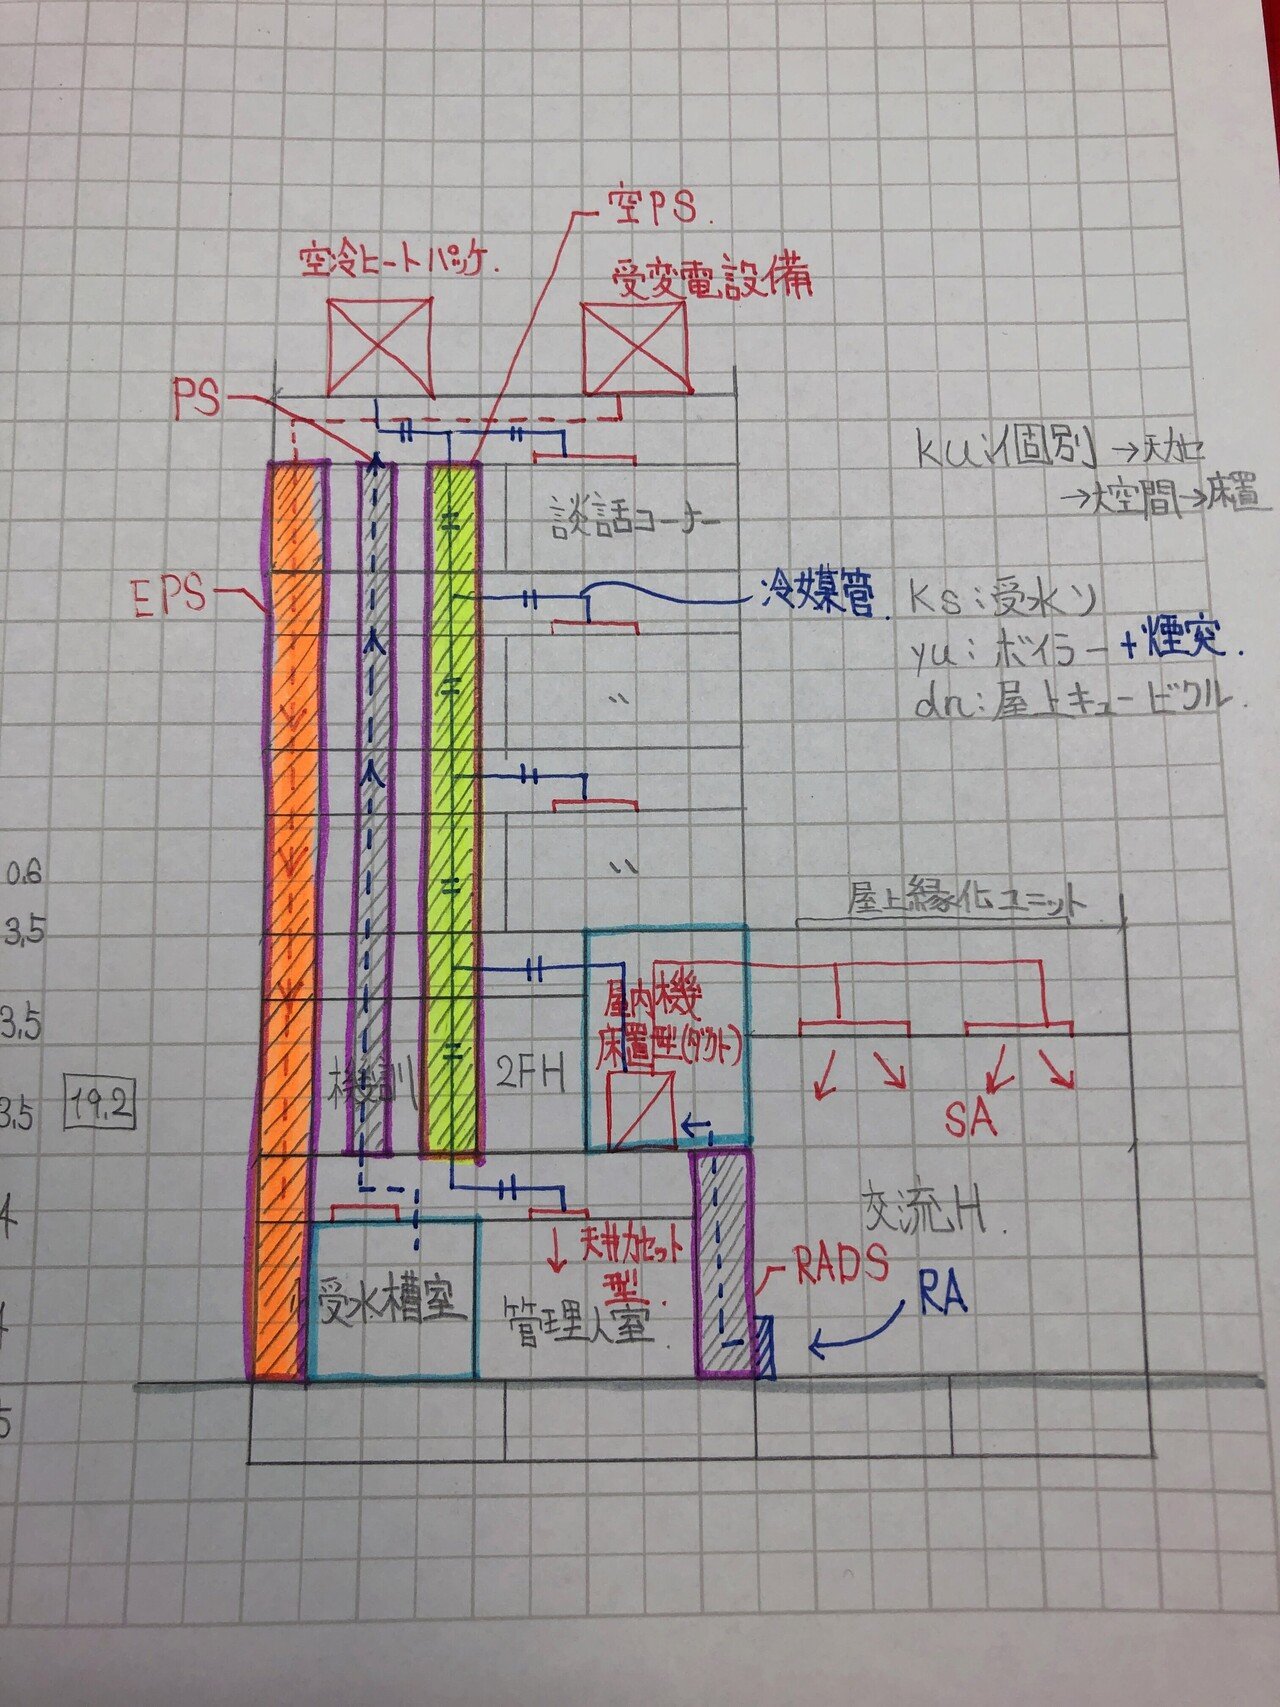 空PS.
空冷ヒートパッケ.
受変電設備
PS
ku:個別→天カセ
→大空間→床置
談話コーナー
EPS
冷媒管.
ks:受水ソ
yu:ボイラー+煙突.
dn:屋上キュービクル.
〃
〃
0.6
3,5
屋上緑化ユニット
3,5
屋内機
床置型(ダクト)
機訓
2FH
3,5
19.2
SA
4
交流H.
天井カセット
型.
RADS
RA
受水槽室
管理人室
4
5